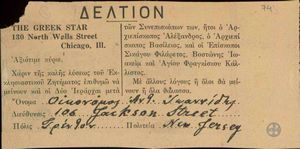 ΔΕΛΤΙΟΝ
74
THE GREEK STAR
130 North Wells Street
Chicago, Ill.
Ἀξιότιμε κύριε,
Χάριν τῆς καλῆς λύσεως τοῦ Ἐκ-
κλησιαστικοῦ Ζητήματος ἐπιθυμῶ νὰ
μείνουν καὶ οἱ Δύο Ἱεράρχαι μετὰ
τῶν Συνεπισκόπων των, ἤτοι ὁ Ἀρ-
χιεπίσκοπος Ἀλέξανδρος, ὁ Ἀρχιεπί-
σκοπος Βασίλειος, καὶ οἱ Ἐπίσκοποι
Σικάγου Φιλάρετος, Βοστώνης Ἰω-
ακεὶμ καὶ Ἁγίου Φραγκίσκου Κάλ-
λιστος.
Μὲ ἄλλους λόγους ἢ ὅλοι θὰ μεί-
νουν ἢ ὅλοι θὰ φύγουν.
Ὄνομα Οἰκονόμος Ἰωαννίδης
Διεύθυνσις 106 Jackson Street
Πόλις Τρέντον Πολιτεία New Jersey